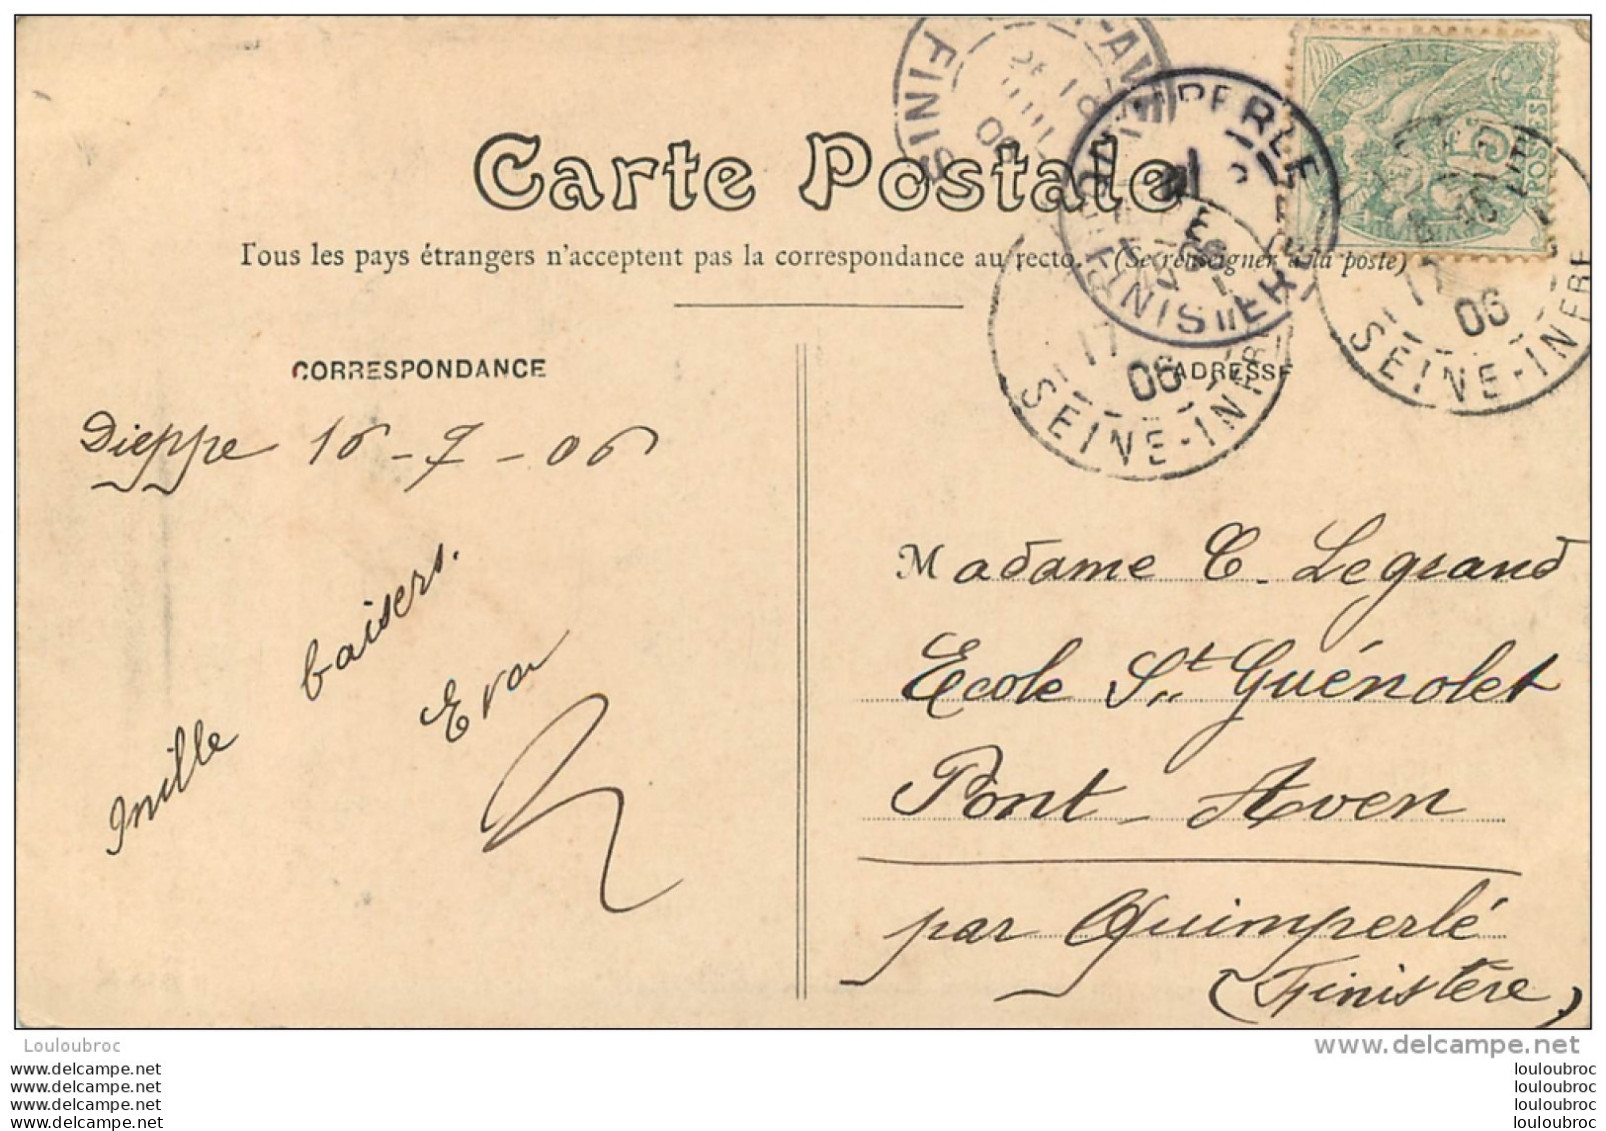 Carte Postale
Tous les pays étrangers n'acceptent pas la correspondance au recto. (Se renseigner à la poste)
CORRESPONDANCE
ADRESSE
Dieppe 16-7-06
Mille baisers.
Madame C. Legrand
Ecole St Guénolet
Pont-Aven
par Quimperlé
(Finistère)
FINIS
06
QUIMPERLE
FINISTERE
17
06
SEINE-INFRE
RÉPUBLIQUE FRANÇAISE
5
POSTES
17
06
SEINE-INFRE
Louloubroc
www.delcampe.net
www.delcampe.net
www.delcampe.net
www.delcampe.net
www.delcampe.net
louloubroc
louloubroc
louloubroc
louloubroc